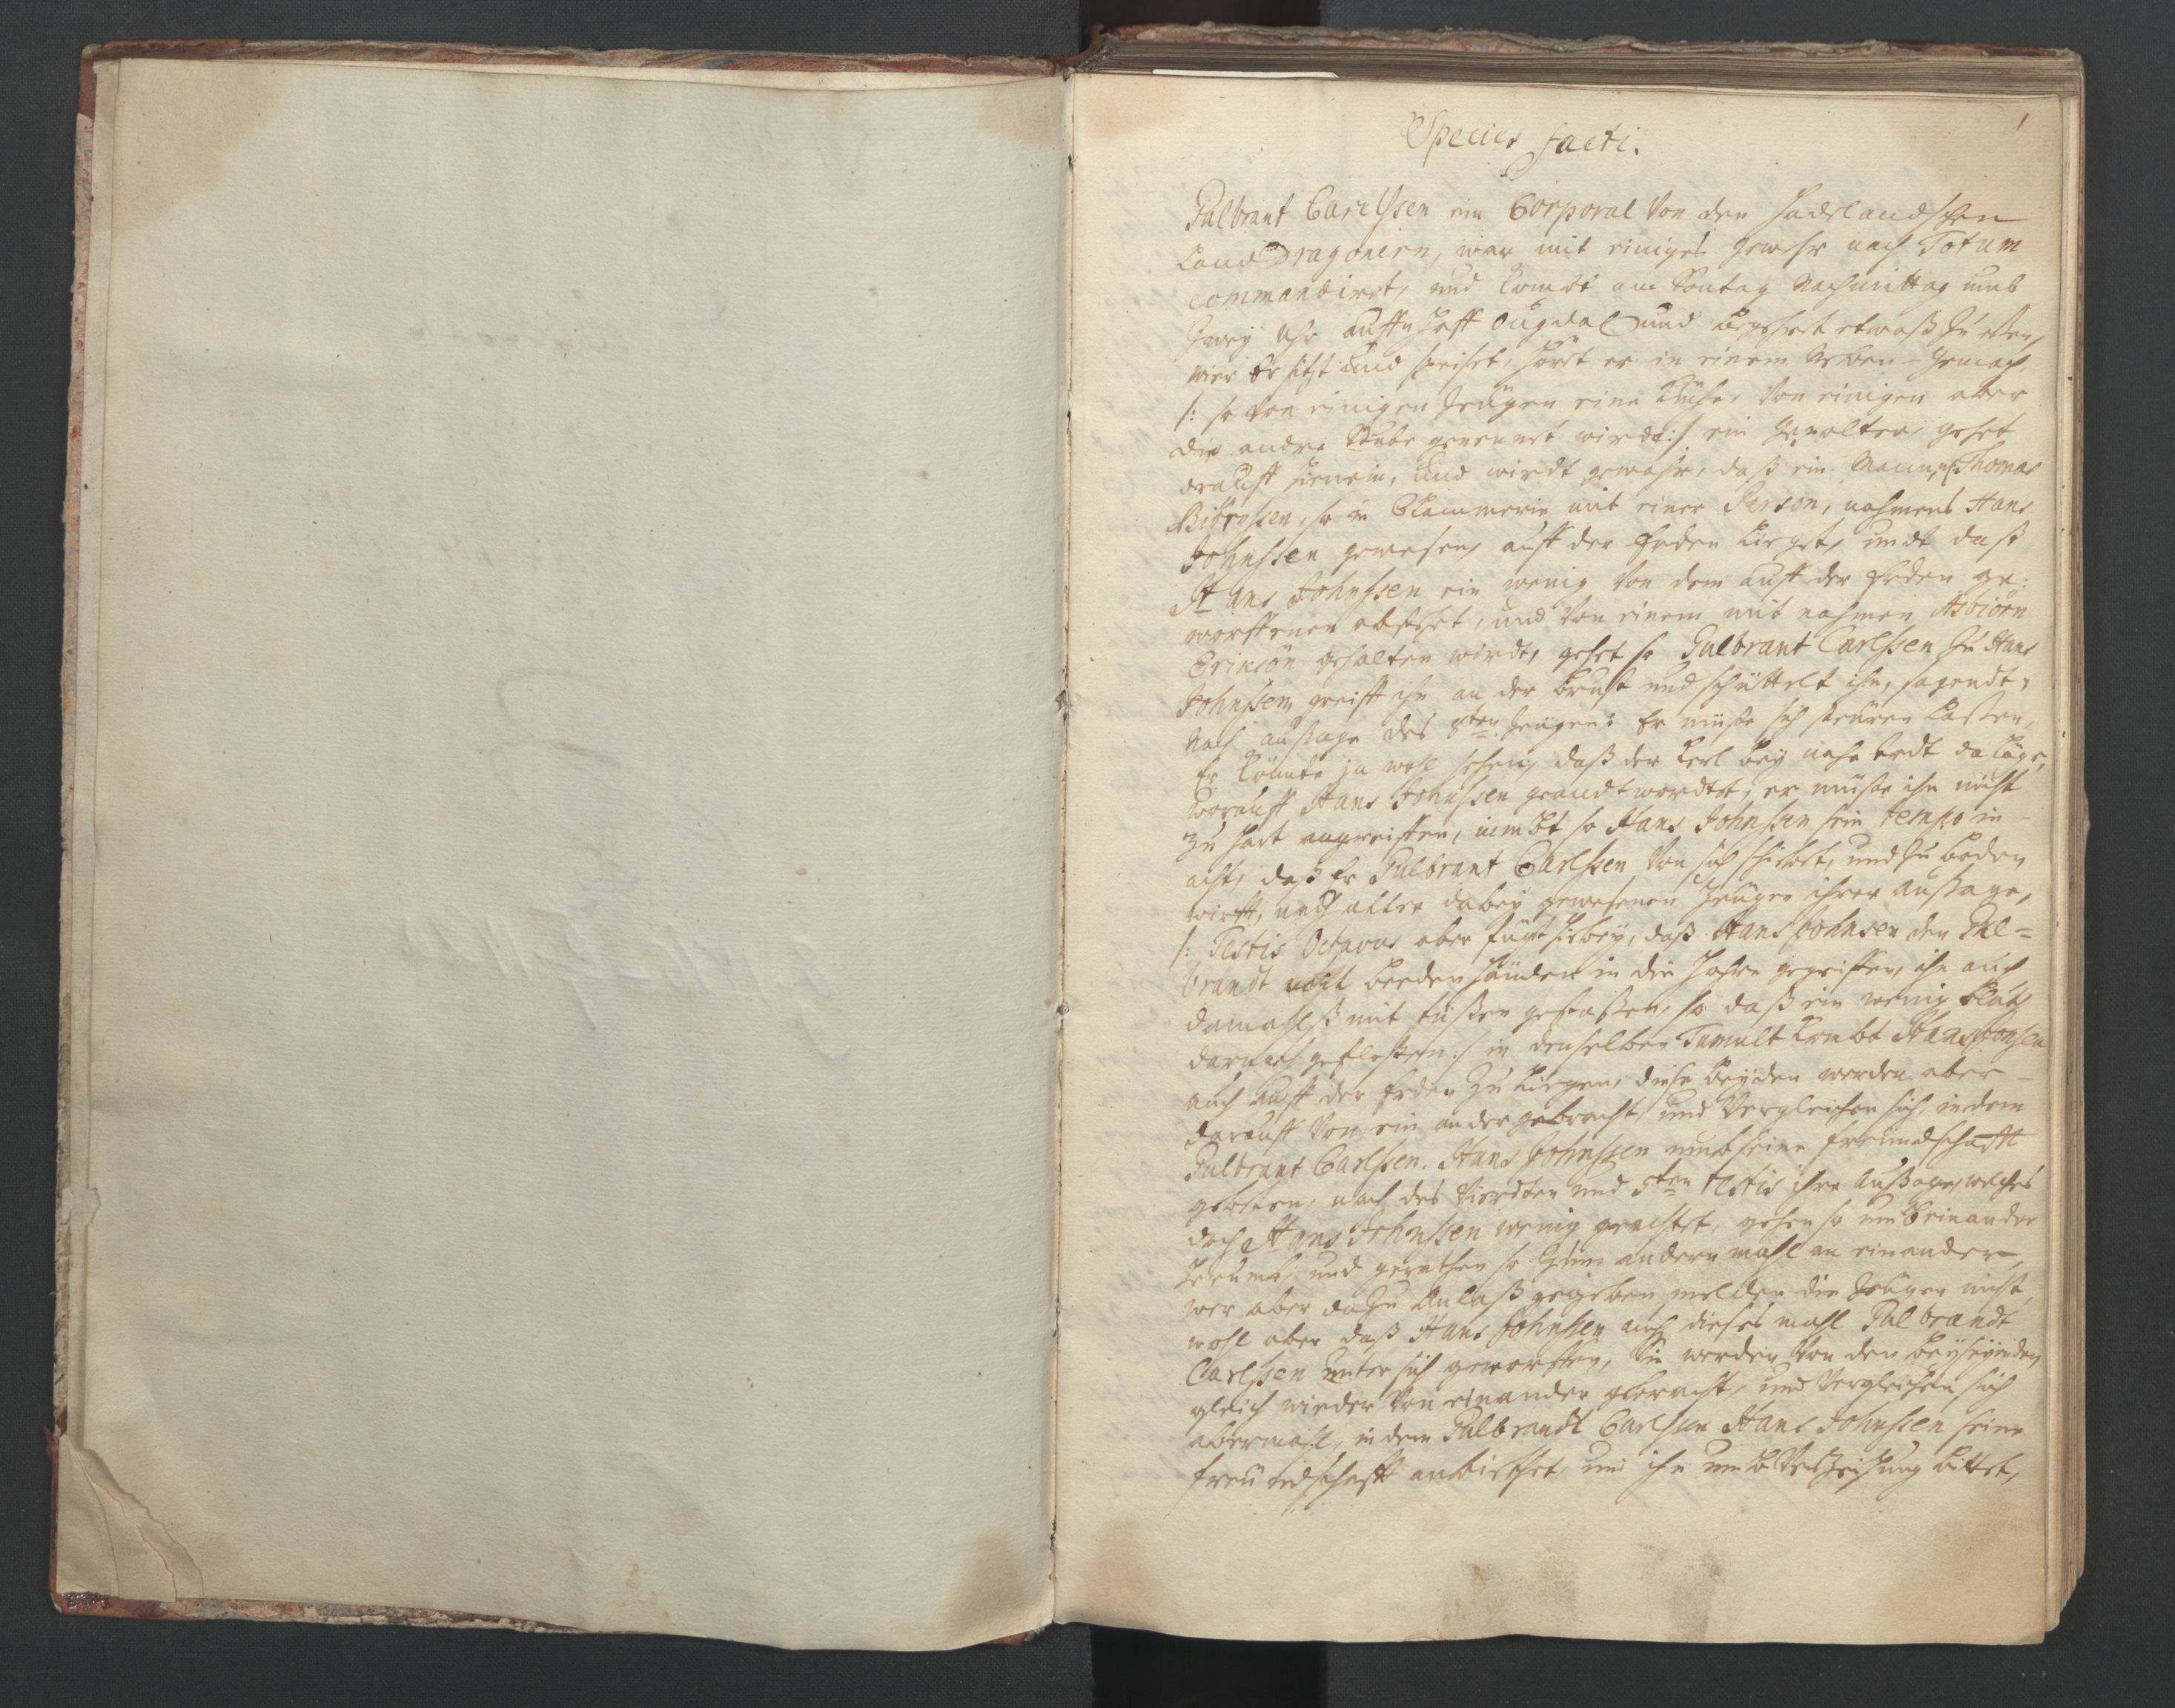 1
Species facti.
Gulbrant Carlssen ein Corporal von den Hadelandschen
Land Dragonern, war mit einiges Gewehr nach Totum
commandiret, und kombt am Sontag Nachmittag umb
Zwey Uhr auffn Hoff Ougdal und begehrt etwaß zu eßen,
wie Er sitzt und speiset, hört er in einem Neben-Gemach
/: so von einigen Zeugen eine Küche, von einigen aber
die andre Stube genennet wird :/ ein Gepolter, gehet
drauff hienein, und wirdt gewahr, daß ein Mann, Thomas
so in Clammerie mit einer Person, nahmens Hans
Johnssen gewesen, auff der Erden lieget, undt daß
Hans Johnssen ein wenig von dem auff der Erden ge:
worffenen abstehet, und von einem mit nahmen Asbiörn
Ericsön gehalten wirdt, gehet so Gulbrant Carlssen zu Hans
Johnssen, greifft ihn an der Brust und schüttelt ihn, sagendt,
Nach außage des 8ten Zeugen: Er müße sich steuren laßen,
Er könte ja wohl sehen, daß der Kerl bey nahe todt da läge,
worauff Hans Johnssen geandtwordtet, er müße ihn nicht
zu hart angreiffen, nimbt so Hans Johnssen sein tempo in
acht, daß Er Gulbrant Carlssen von sich und zu boden
wirfft, nach aller dabey gewesenen Zeugen ihrer Aussage,
/: Testis Octavus aber fügt hiebey, daß Hans Johnsen den Gul=
brandt mit beeden Händen in die Hahre gegriffen, ihn auch
damahlß mit füßen gestoßen, so daß ein wenig Blut
darnach gefloßen :/ in denselben Tumult kombt Hans Jonsen
auch auff der Erden zu liegen, diese beyden werden aber
darauff von ein ander gebracht und vergleichen sich, indem
Gulbrant Carlssen, Hans Johnssen umb seine freundschafft
gebeten, nach des vierdten und 5ten testis ihre Aussage, welches
doch Hans Johnssen wenig geachtet, gehen so umb einander
herumb, und gerathen so zum andern mahl an einander,
wer aber dazu Anlaß gegeben melden die Zeugen nicht,
wohl aber daß Hans Johnssen auch dieses mahl Gulbrandt
Carlssen unter sich geworffen, Sie werden von den beyseyenden
gleich wieder von einander gebracht, und vergleichen sich
abermahl, in dem Gulbrandt Carlssen Hans Johnssen seine
freundschafft anbiethet, und ihn umb Verzeihung bittet,